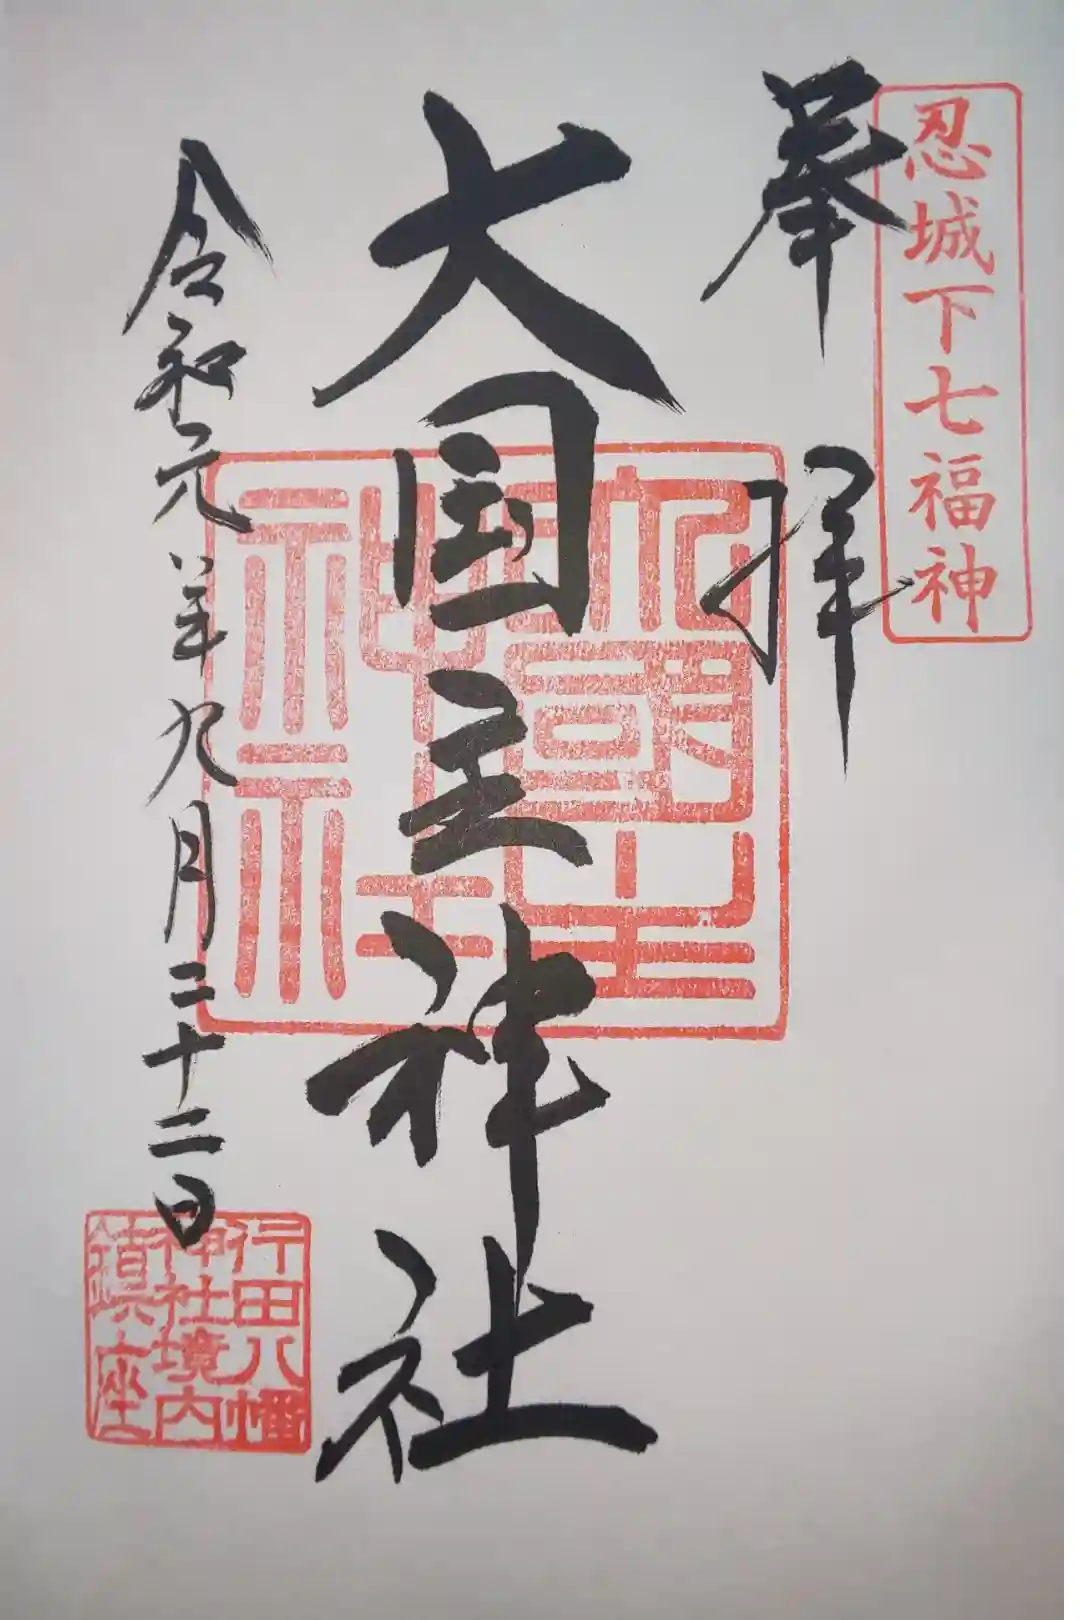 忍城下七福神
奉拝
大国主神社
大國主神社
令和元年九月二十二日
行田八幡
神社境内
鎮座